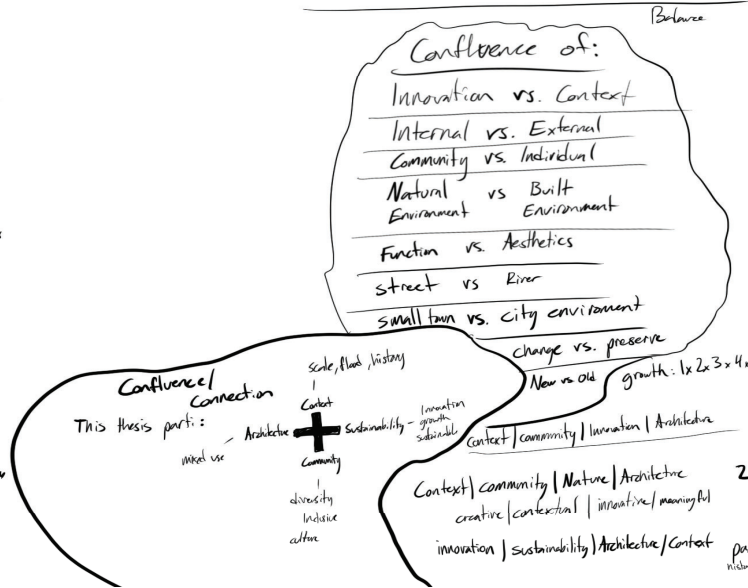 Balance
Confluence of:
Innovation vs. Context
Internal vs. External
Community vs. Individual
Natural Environment vs Built Environment
Function vs. Aesthetics
street vs River
small town vs. city enviroment
change vs. preserve
New vs Old
growth: 1x 2x 3x 4x
Confluence/
Connection
This thesis parti:
scale, flood, history
Context
Architecture
Sustainability
Innovation
growth
sustainable
mixed use
Community
diversity
Inclusive
culture
Context | community | Innovation | Architecture
Context | community | Nature | Architecture
creative / contextual | innovative / meaningful
innovation | sustainability | Architecture / Context
2